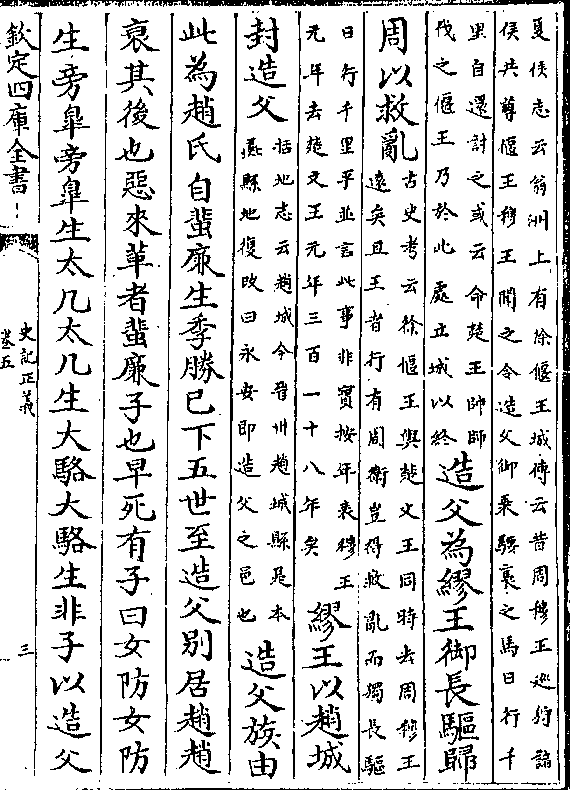 夏侯志云翁洲上有徐偃王城傳云昔周穆王巡狩諸
侯共尊偃王穆王聞之令造父御乘騕褭之馬日行千
里自還討之或云命楚王帥師
伐之偃王乃於此處立城以終
造父為繆王御長驅歸
周以救亂
古史考云徐偃王與楚文王同時去周穆王
遠矣且王者行有周衛豈得救亂而獨長驅
日行千里乎並言此事非實按年表穆王
元年去楚文王元年三百一十八年矣
繆王以趙城
封造父
括地志云趙城今晉州趙城縣是本
彘縣地復改曰永安即造父之邑也
造父族由
此為趙氏自蜚廉生季勝已下五世至造父別居趙趙
衰其後也惡來革者蜚廉子也早死有子曰女防女防
生旁臯旁臯生太几太几生大駱大駱生非子以造父
欽定四庫全書
史記正義
卷五
三